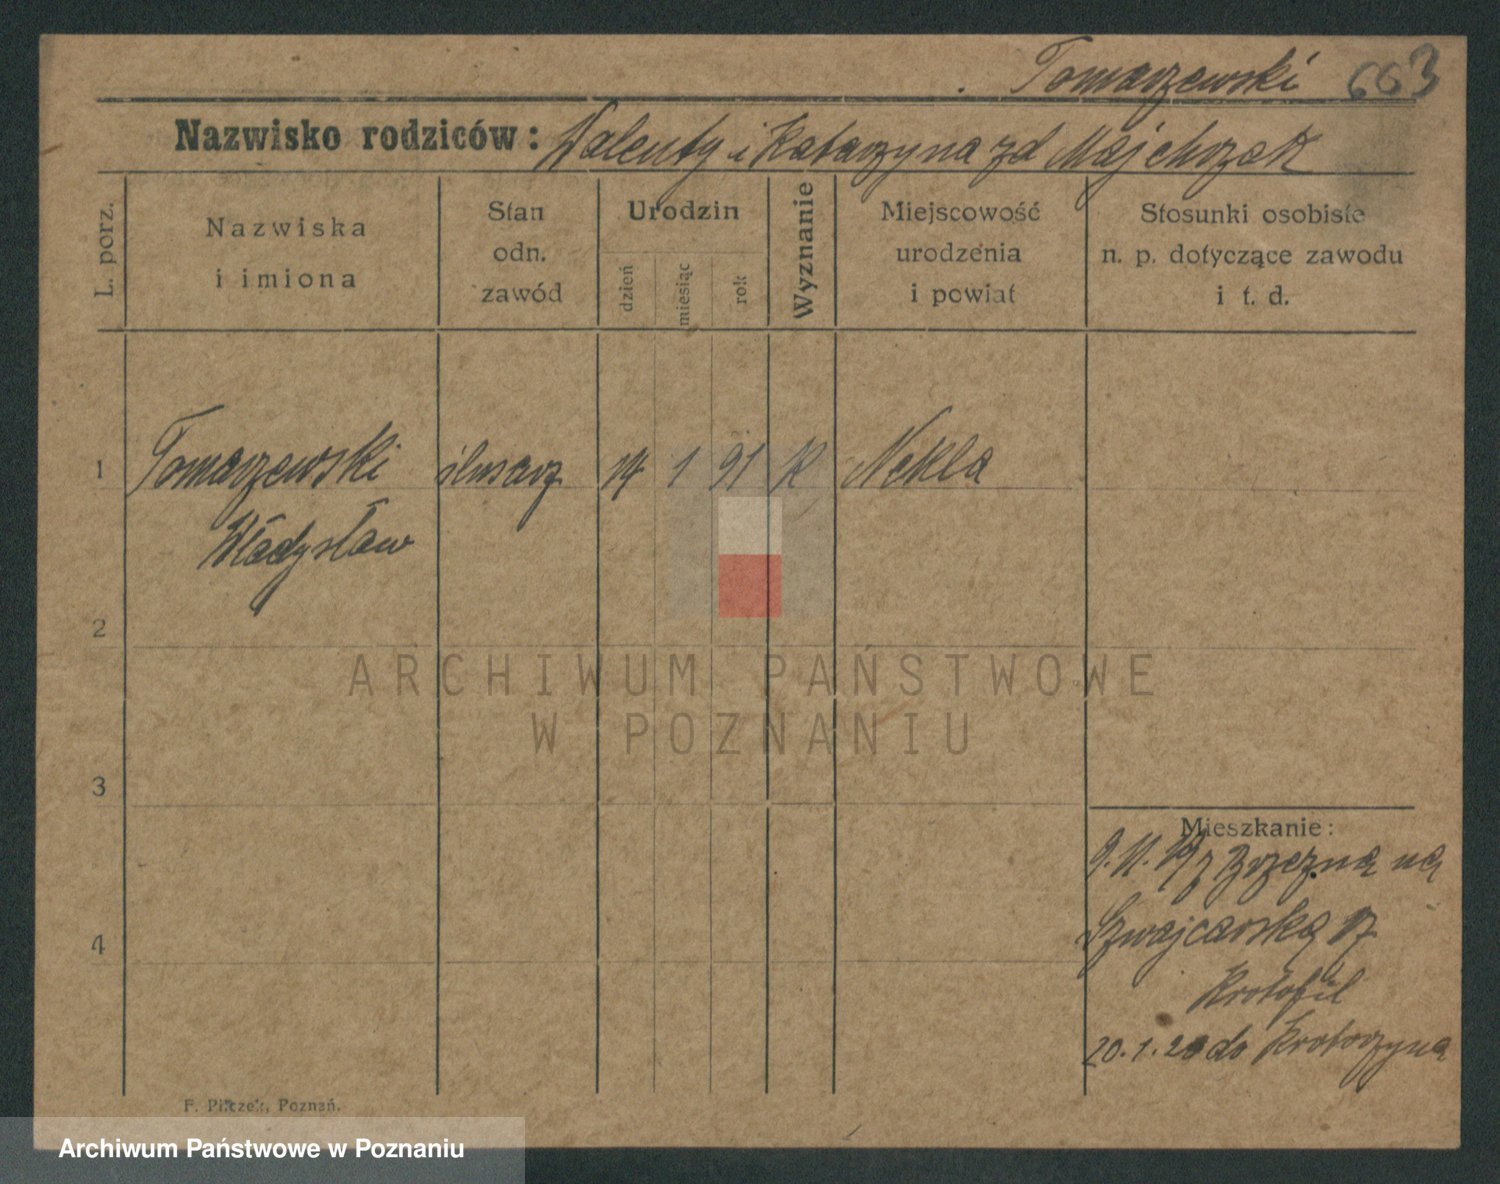 Tomarzewski 663
Nazwisko rodziców: Walenty i Katarzyna zd Majchrzak
L. porz.
Nazwiska
i imiona
Stan
odn.
zawód
Urodzin
dzień
miesiąc
rok
Wyznanie
Miejscowość
urodzenia
i powiat
Stosunki osobiste
n. p. dotyczące zawodu
i t. d.
1 Tomarzewski ślusarz 14 1 91 K Nekla
Władysław
2
ARCHIWUM PAŃSTWOWE
W POZNANIU
3
Mieszkanie:
9.11.19 z Brzezna na
4
Szwajcarską 17
Krotofil
20.1.20 do Krotoszyna
F. Pilczek, Poznań.
Archiwum Państwowe w Poznaniu